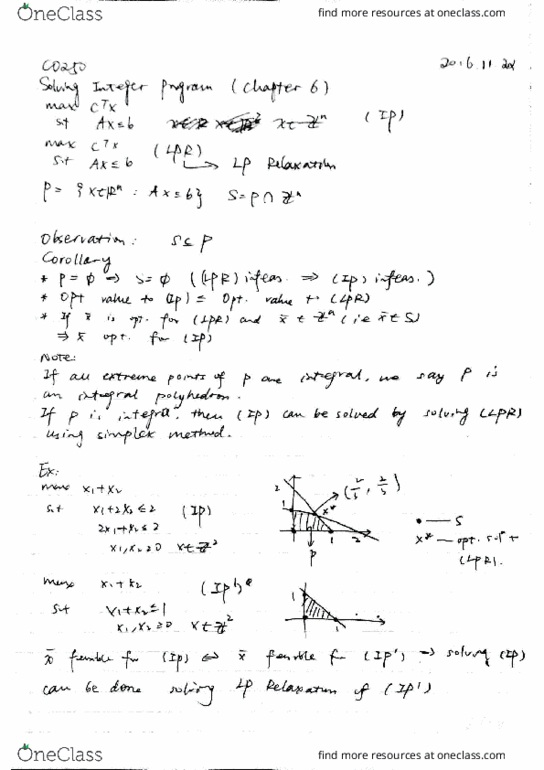 OneClass
find more resources at oneclass.com
CO250
2016.11
Solving Integer Program (Chapter 6)
max cᵀx
st Ax ≤ b x ∈ ℤⁿ (IP)
max cᵀx (LPR)
s.t Ax ≤ b → LP Relaxation
P = {x ∈ ℝⁿ : Ax ≤ b} S = P ∩ ℤⁿ
Observation: S ⊆ P
Corollary
* P = ∅ ⇒ S = ∅ ((LPR) infeas. ⇒ (IP) infeas.)
* Opt value to (IP) ≤ Opt. value to (LPR)
* If x̄ is opt. for (LPR) and x̄ ∈ ℤⁿ (i.e x̄ ∈ S)
⇒ x̄ opt. for (IP)
Note:
If all extreme points of P are integral, we say P is
an integral polyhedron.
If P is integral, then (IP) can be solved by solving (LPR)
using simplex method.
Ex:
max x₁+x₂
s.t x₁+2x₂ ≤ 2 (IP)
2x₁+x₂ ≤ 2
x₁,x₂ ≥ 0 x ∈ ℤ²
2
1
x*
1
2
P
• — S
x* — opt. sol to
(LPR).
max x₁+x₂ (IP')
s.t x₁+x₂ ≤ 1
x₁,x₂ ≥ 0 x ∈ ℤ²
1
1
x̄ feasible for (IP) ⇔ x̄ feasible for (IP') → solving (IP)
can be done solving LP Relaxation of (IP')
OneClass
find more resources at oneclass.com